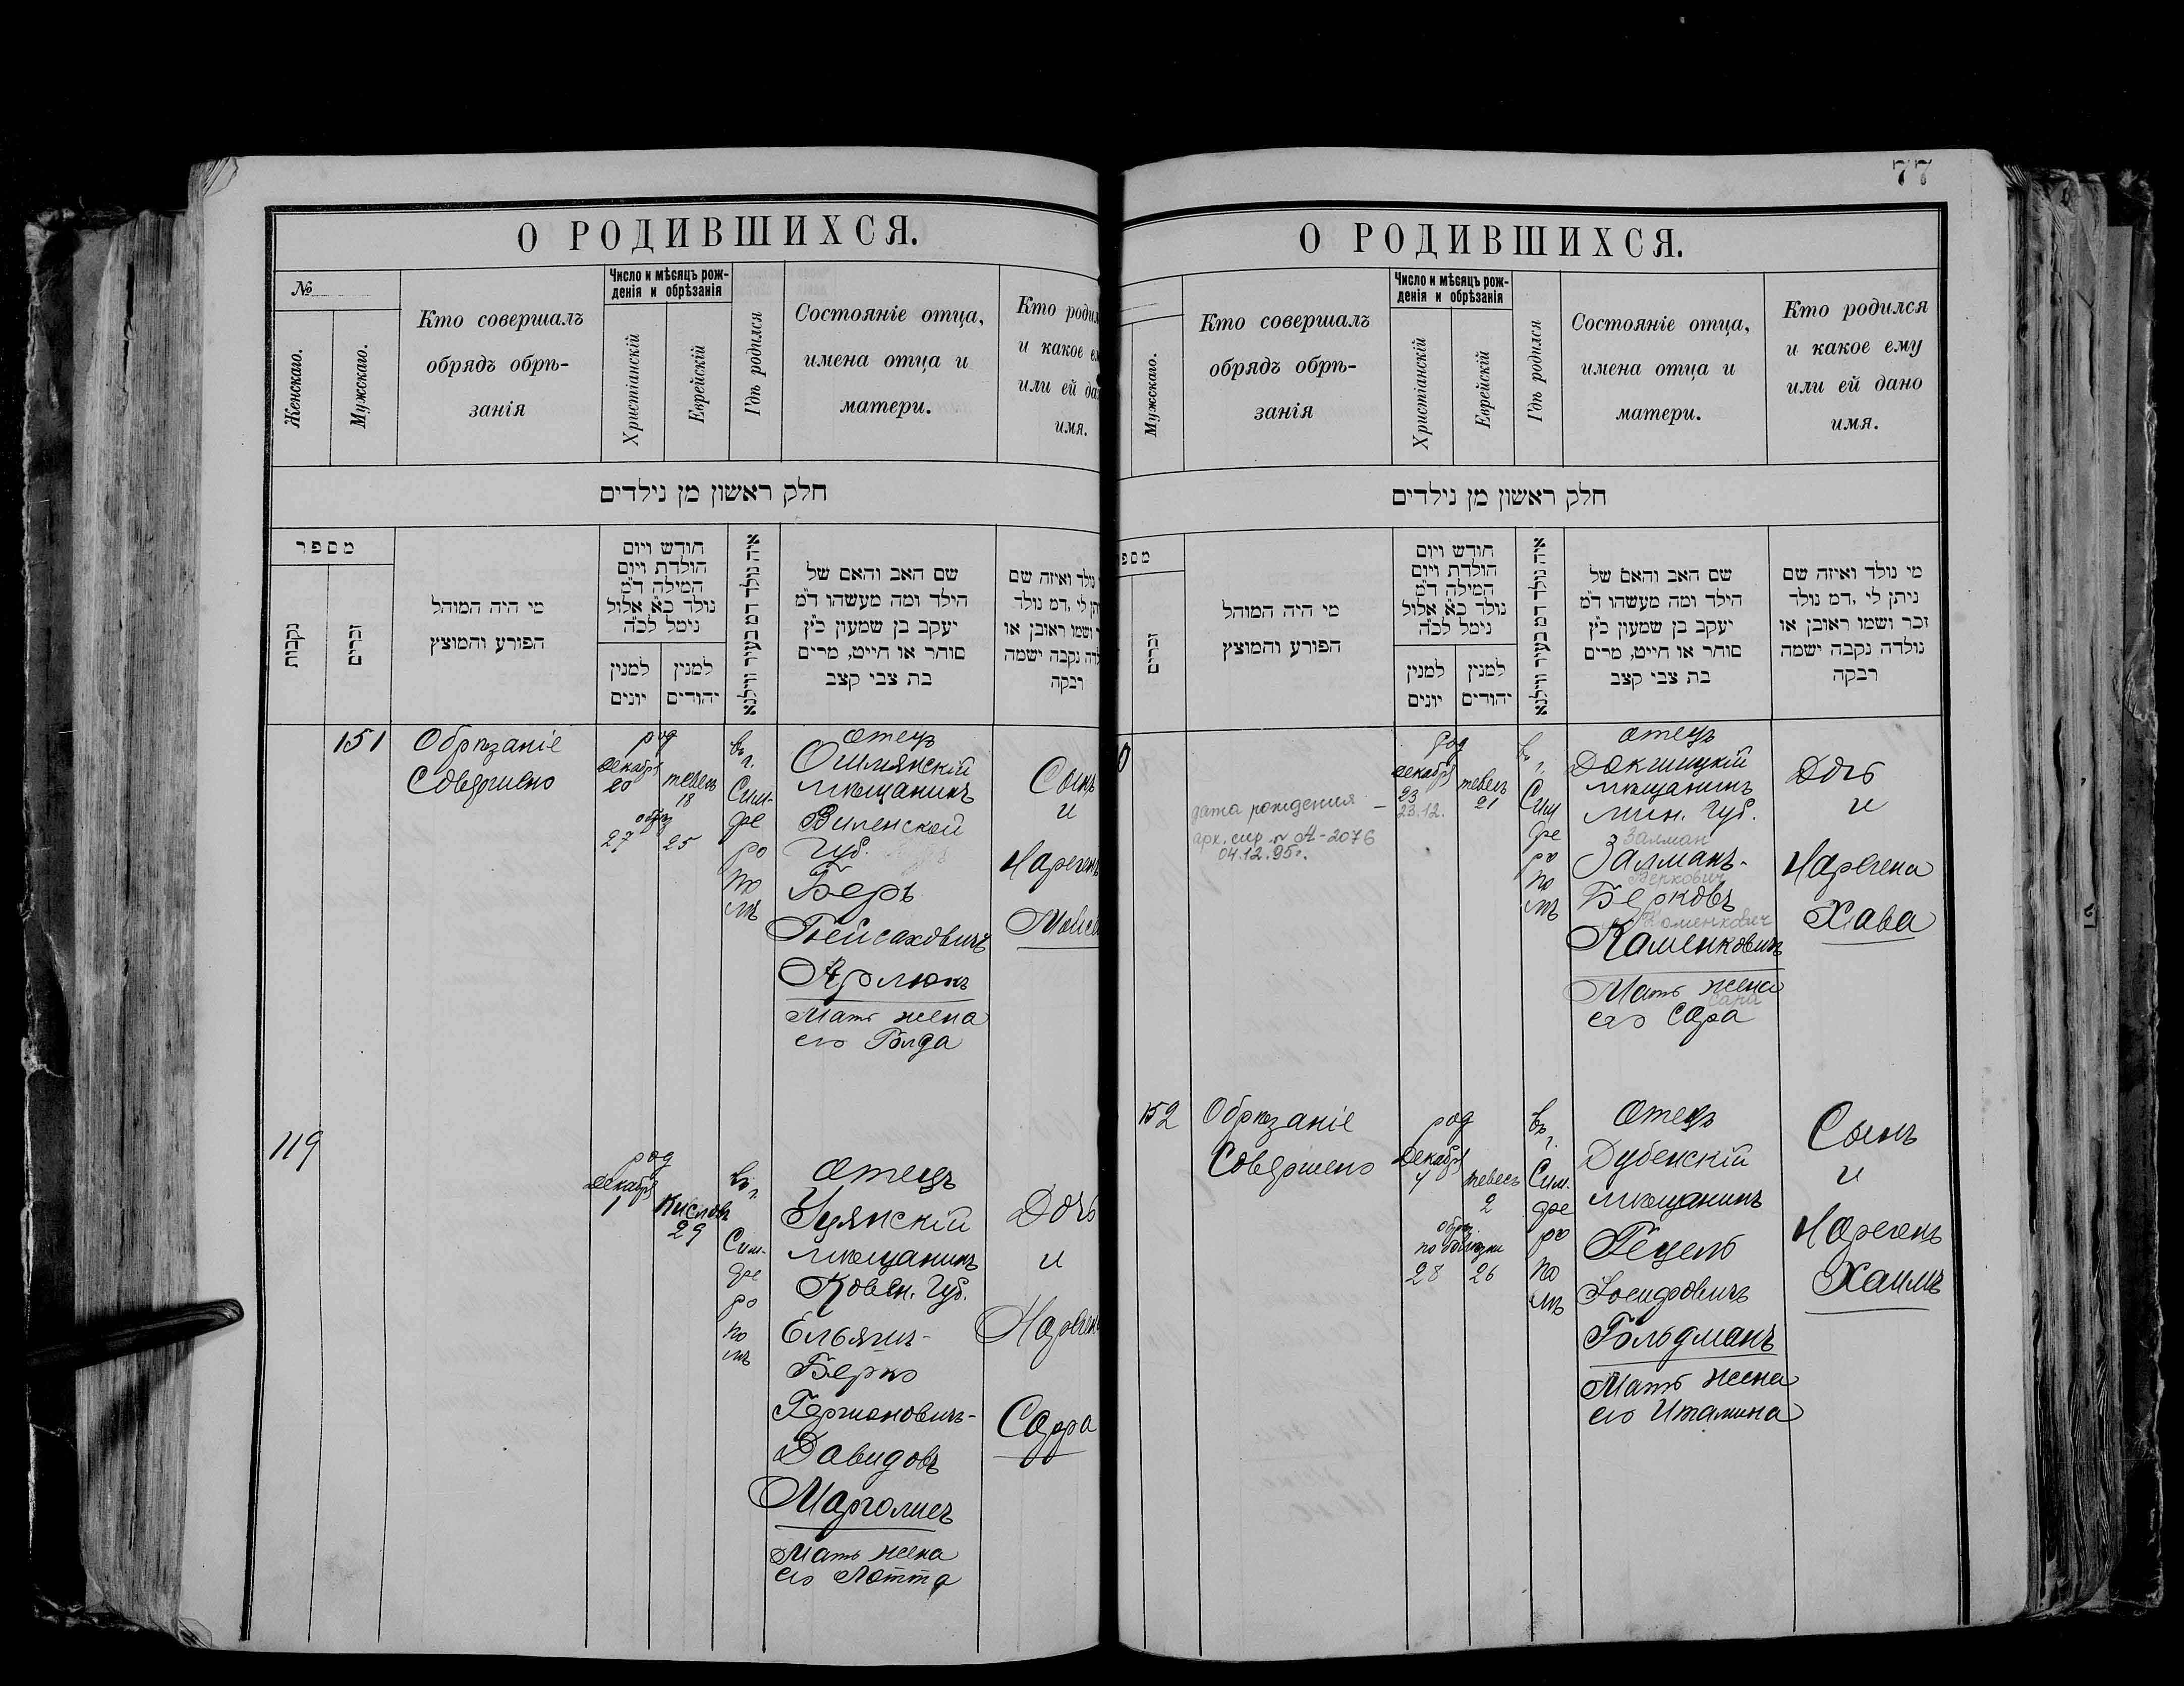 О РОДИВШИХСЯ.
№
Женскаго.
Мужскаго.
Кто совершалъ
обрядъ обрѣ-
занія
Число и мѣсяцъ рож-
денія и обрѣзанія
Христіанскій
Еврейскій
Гдѣ родился
Состояніе отца,
имена отца и
матери.
Кто родил
и какое е
или ей да
имя.
חלק ראשון מן נילדים
מספר
נקבות
זכרים
מי היה המוהל
הפורע והמוצץ
חודש ויום
הולדת ויום
המילה ד״מ
נולד כ״א אלול
נימל לכ״ה
למנין
יונים
למנין
יהודים
איה נולד דמ בעיר ווילנא
שם האב והאם של
הילד ומה מעשהו ד״מ
יעקב בן שמעון כ״ץ
סוחר או חייט, מרים
בת צבי קצב
נולד ואיזה שם
יתן לי ,דמ נולד
ושמו ראובן או
לדה נקבה ישמה
רבקה
151
Обрѣзаніе
Совершено
род
Декабря
20
тевесъ
18
обрѣз
27
25
въ
г.
Сим-
фе
ро
по
лѣ
отецъ
Ошмянскій
мѣщанинъ
Виленской
Губ.
Беръ
Пейсаховичъ
Арлюкъ
Мать жена
его Голда
Сынъ
и
Нареченъ
Моисе
119
род
Декабря
1
Кислевъ
29
въ
г.
Сим-
фе
ро
по
лѣ
отецъ
Уцянскій
мѣщанинъ
Ковен. Губ.
Ельяшъ-
Берко
Германовичъ-
Давидовъ
Марголисъ
Мать жена
его Лотта
Дочь
и
Наречен
Сарра
77
О РОДИВШИХСЯ.
Мужскаго.
Кто совершалъ
обрядъ обрѣ-
занія
Число и мѣсяцъ рож-
денія и обрѣзанія
Христіанскій
Еврейскій
Гдѣ родился
Состояніе отца,
имена отца и
матери.
Кто родился
и какое ему
или ей дано
имя.
חלק ראשון מן נילדים
מספ
זכרים
מי היה המוהל
הפורע והמוצץ
חודש ויום
הולדת ויום
המילה ד״מ
נולד כ״א אלול
נימל לכ״ה
למנין
יונים
למנין
יהודים
איה נולד דמ בעיר ווילנא
שם האב והאם של
הילד ומה מעשהו ד״מ
יעקב בן שמעון כ״ץ
סוחר או חייט, מרים
בת צבי קצב
מי נולד ואיזה שם
ניתן לי ,דמ נולד
זכר ושמו ראובן או
נולדה נקבה ישמה
רבקה
0
дата рождения –
23.12.
арх. спр. № А-2076
04.12.95г.
род
Декабря
23
тевесъ
21
въ
г.
Сим
фе
ро
по
лѣ
отецъ
Докшицкій
мѣщанинъ
Мин. Губ.
Залман
Залманъ-
Беркович
Берковъ
Каменкович
Каменковичъ
Мать жена
Сара
его Сара
Дочь
и
Наречена
Хава
152
Обрѣзаніе
Совершено
род
Декабря
4
тевесъ
2
обрѣз.
по болѣзни
28
26
въ
г.
Сим.
фе
ро
по
лѣ
Отецъ
Дубенскій
мѣщанинъ
Гецель
Іосифовичъ
Гольдманъ
Мать жена
его Италина
Сынъ
и
Нареченъ
Хаимъ